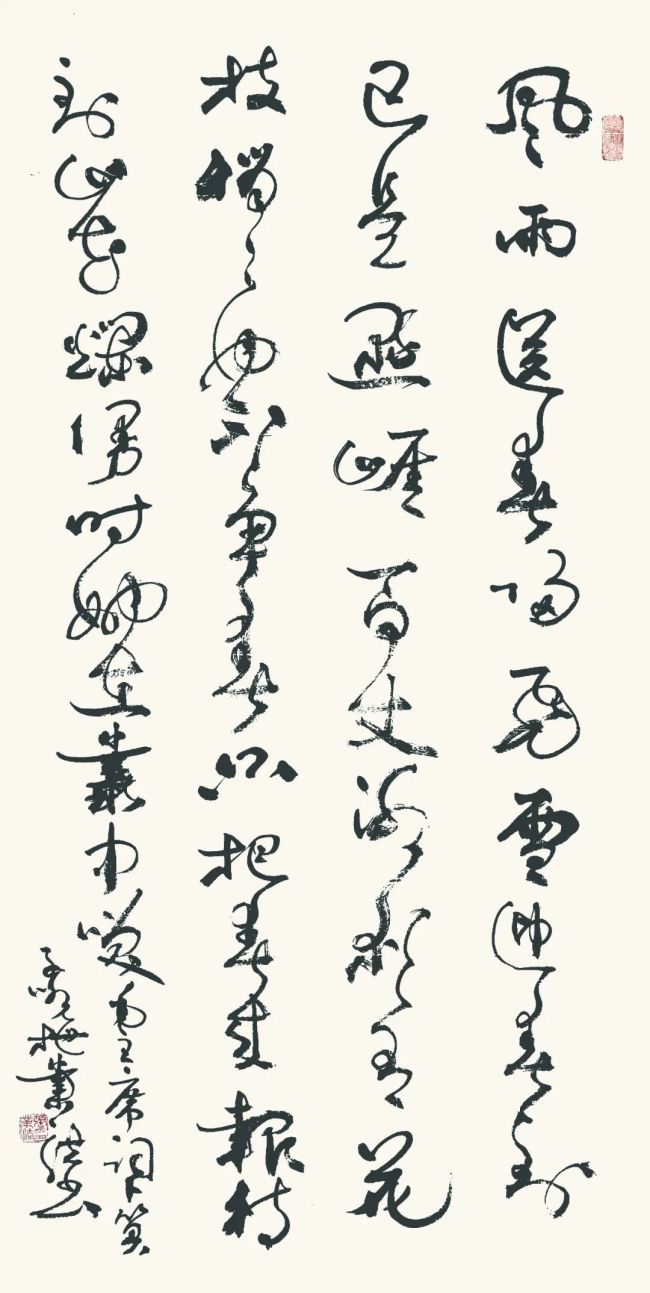 風雨送春归飛雪迎春到
已是懸崖百丈冰犹有花
枝俏々也不争春只把春来報待
到山花爛漫时她在叢中笑 毛主席词卜算
子咏梅 書